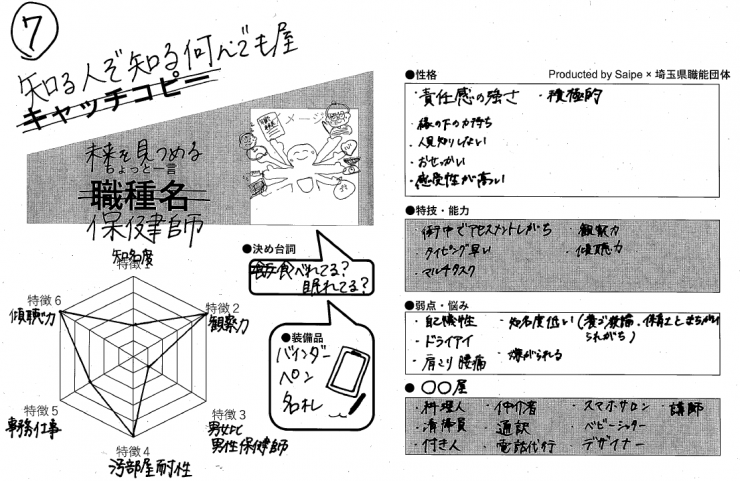 ⑦
知る人ぞ知る何でも屋
キャッチコピー
メージ
未来を見つめる
ちょっと一言
職種名
保健師
●決め台詞
食べれてる?
眠れてる?
知名度
特徴1
特徴2
観察力
特徴3
男女比
男性保健師
特徴4
汚部屋耐性
特徴5
事務仕事
特徴6
傾聴力
●装備品
バインダー
ペン
名札
●性格
Producted by Saipe × 埼玉県職能団体
・責任感の強さ ・積極的
・縁の下の力持ち
・人見知りしない
・おせっかい
・感受性が高い
●特技・能力
・街中でアセスメントしがち ・観察力
・タイピング早い ・傾聴力
・マルチタスク
●弱点・悩み
・自己犠牲 ・知名度低い(養ゴ教諭、保育士とまちがえ
られがち)
・ドライアイ
・肩こり 腰痛 ・嫌がられる
● 〇〇屋
・料理人 ・仲介者 ・スマホサロン ・講師
・清掃員 ・通訳 ・ベビーシッター
・付き人 ・電話代行 ・デザイナー